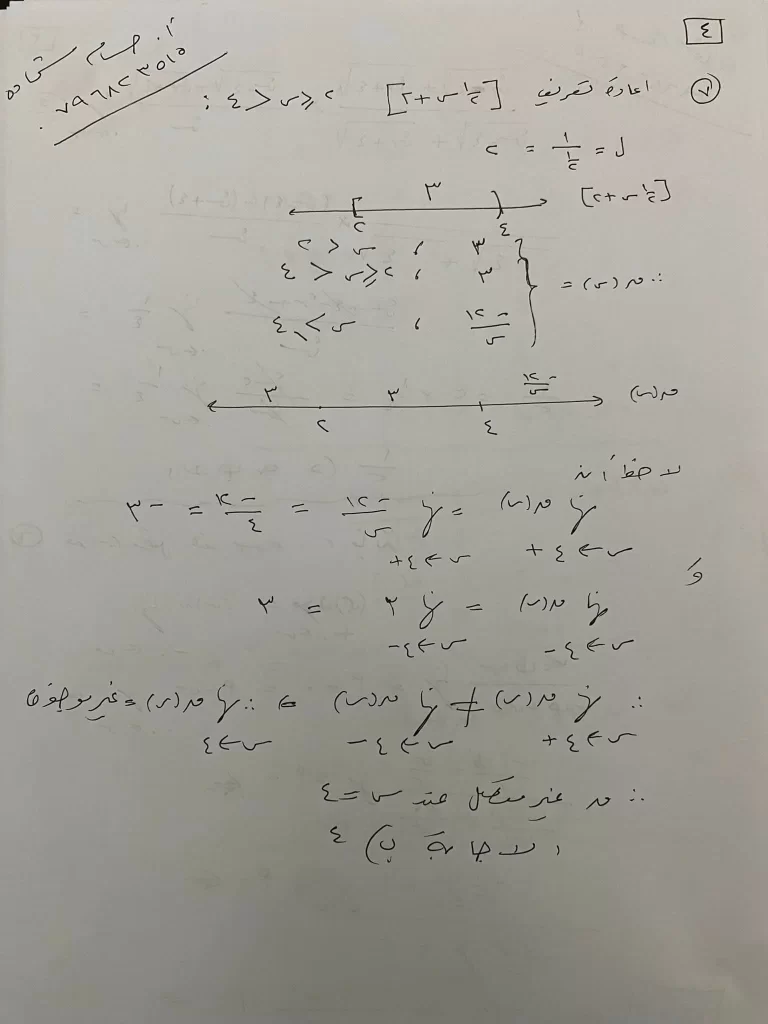 ٤
أ. حسام شتات
٠٧٩٦٨٢٣٥١٥
٧ اعادة تعريف [½ س + ٢] ٢ ≤ س < ٤ :
ل = ١/(١/٢) = ٢
[½ س + ٢] ٣
٢ ٤
∴ ق(س) = { ٣ ، س < ٢
٣ ، ٢ ≤ س < ٤
-١٢/س ، س ≥ ٤
ق(س) ٣ ٣ -١٢/س
٢ ٤
لاحظ أنه
نها ق(س) = نها -١٢/س = -١٢/٤ = -٣
س→٤+ س→٤+
و
نها ق(س) = نها ٣ = ٣
س→٤- س→٤-
∴ نها ق(س) ≠ نها ق(س) ⇐ ∴ نها ق(س) = غير موجودة
س→٤+ س→٤- س→٤
∴ ق غير متصل عند س = ٤
الاجابة ب) ٤